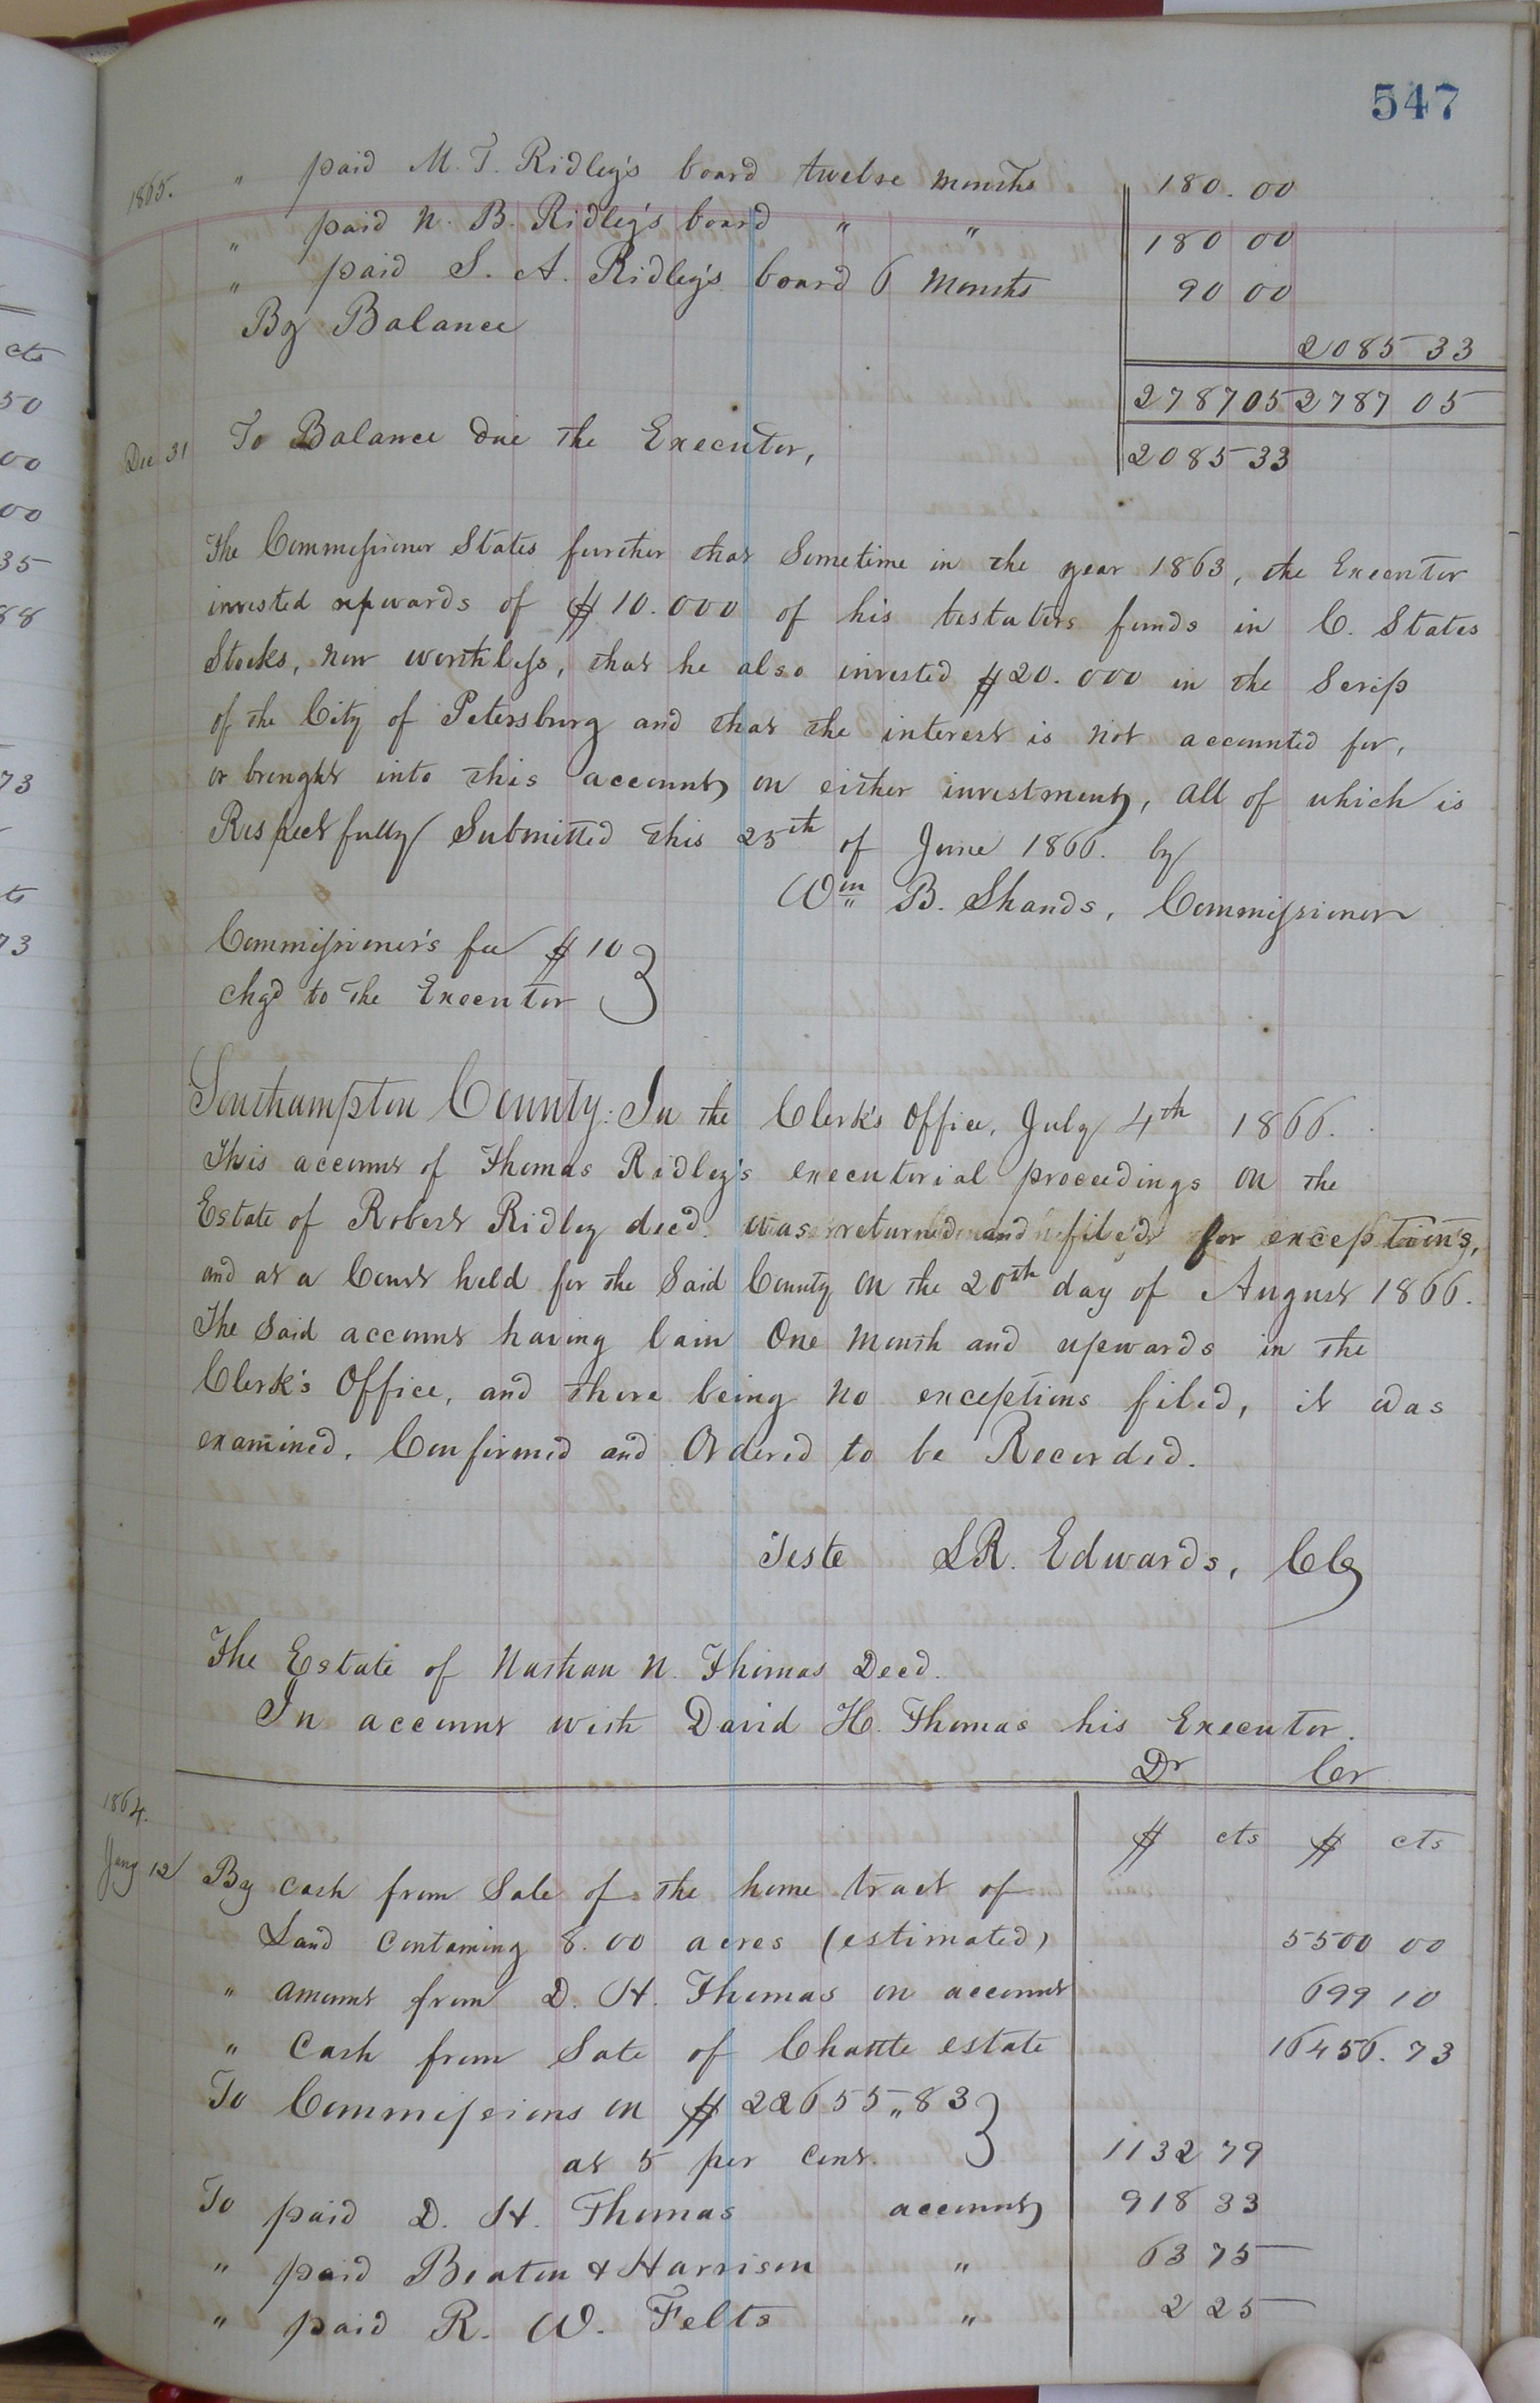 547
1865. " paid M. T. Ridley's board twelve months 180.00
" paid N. B. Ridley's board " " 180 00
" paid S. A. Ridley's board 6 months 90 00
By Balance 2085 33
2787 05 2787 05
Dec 31 To Balance due the Executor, 2085 33
The Commissioner States further that Sometime in the year 1863, the Executor
invested upwards of $10.000 of his testators funds in C. States
Stocks, now worthless, that he also invested $20.000 in the Scrip
of the City of Petersburg and that the interest is not accounted for,
or brought into this account, on either investment, all of which is
Respectfully Submitted this 25th of June 1866. by
Wm B. Shands, Commissioner
Commissioner's fee $10 }
chgd to the Executor
Southampton County: In the Clerk's Office, July 4th 1866.
This account of Thomas Ridley's executorial proceedings on the
Estate of Robert Ridley decd. was returned and filed for exceptions,
and at a Court held for the Said County on the 20th day of August 1866.
The Said account having lain One Month and upwards in the
Clerk's Office, and there being no exceptions filed, it was
examined, Confirmed and Ordered to be Recorded.
Teste L R. Edwards, CC
The Estate of Nathan N. Thomas Decd.
In account with David H. Thomas his Executor.
Dr Cr
1864. $ cts $ cts
Jany 12 By cash from Sale of the home tract of
Land containing 8.00 acres (estimated) 5500 00
" amount from D. H. Thomas on account 699 10
" Cash from Sale of Chattle estate 16456.73
To Commissions on $22655"83 }
at 5 per cent. 1132 79
To paid D. H. Thomas account 918 33
" paid Beaton & Harrison " 63 75
" paid R. W. Felts " 2 25
cts
50
00
00
35
88
73
73